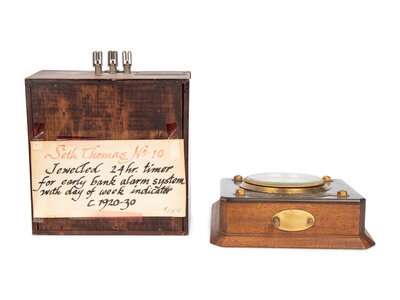 Seth Thomas No. 10
Jewelled 24 hr. timer
for early bank alarm system
with day of week indicator
C. 1920-30